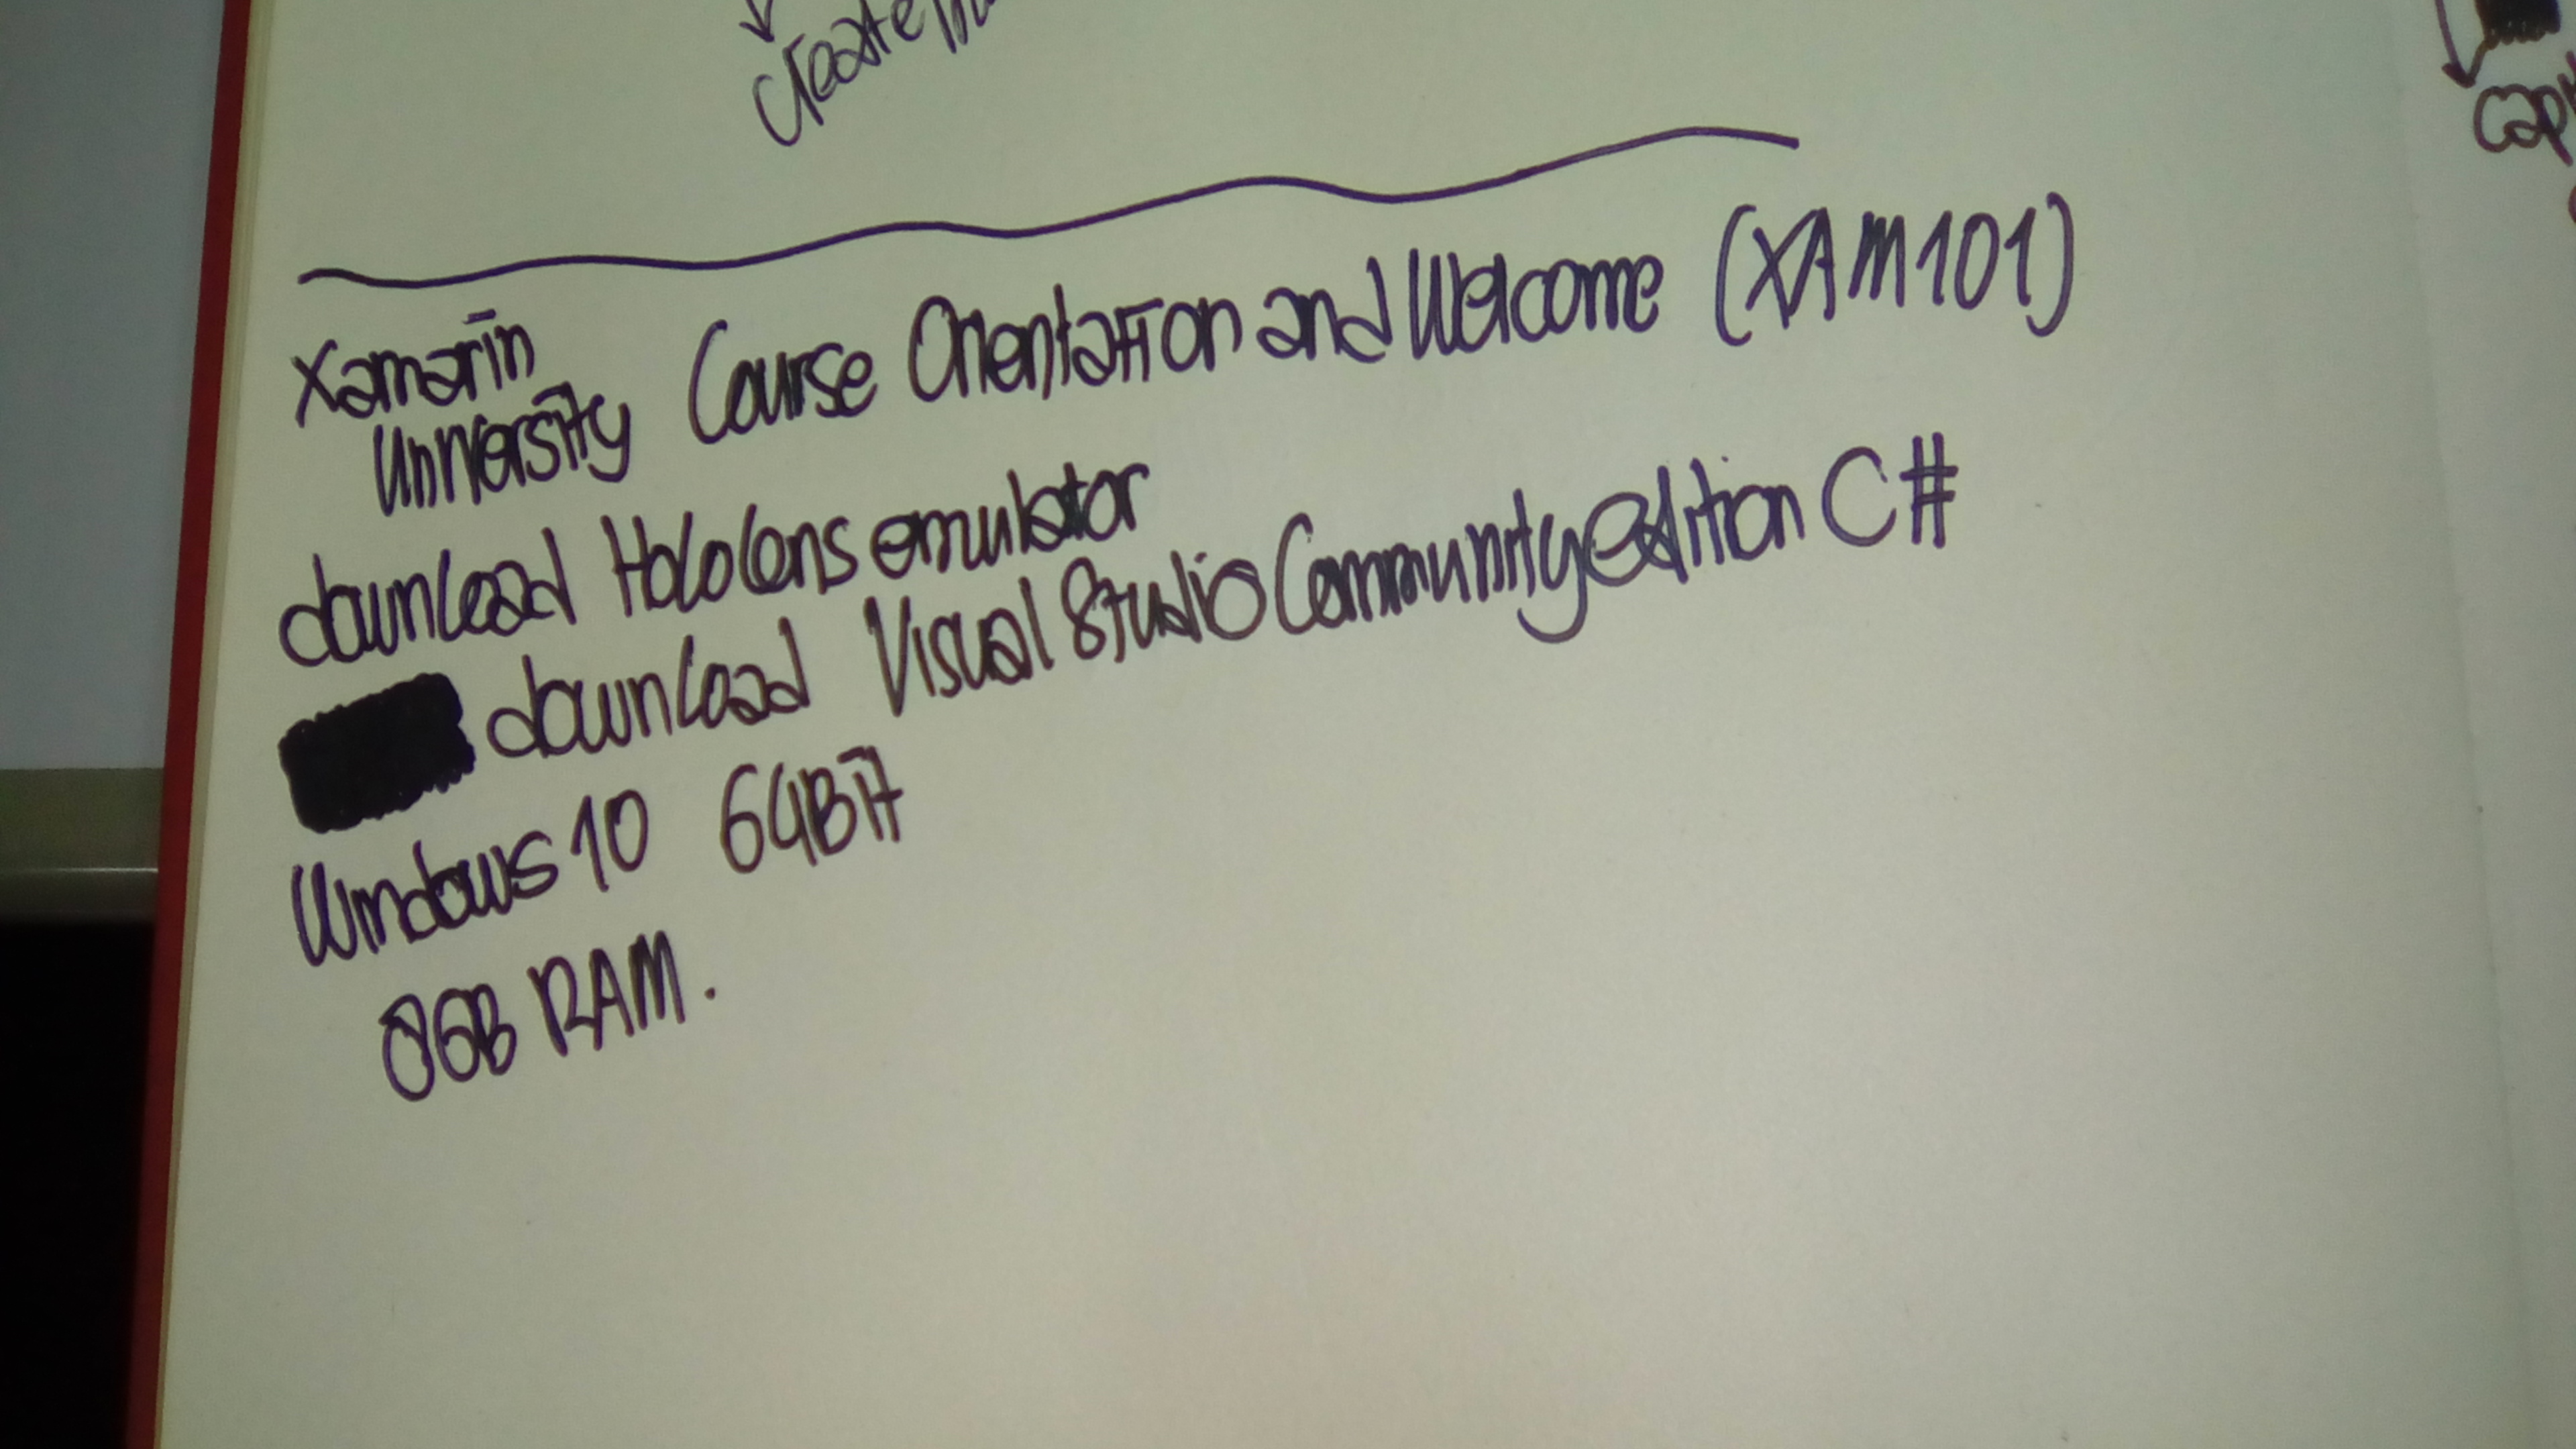 Xamarin
University Course Orientation and Welcome (XAM101)
download Hololens emulator
download Visual Studio Community edition C#
Windows 10 64Bit
8GB RAM.